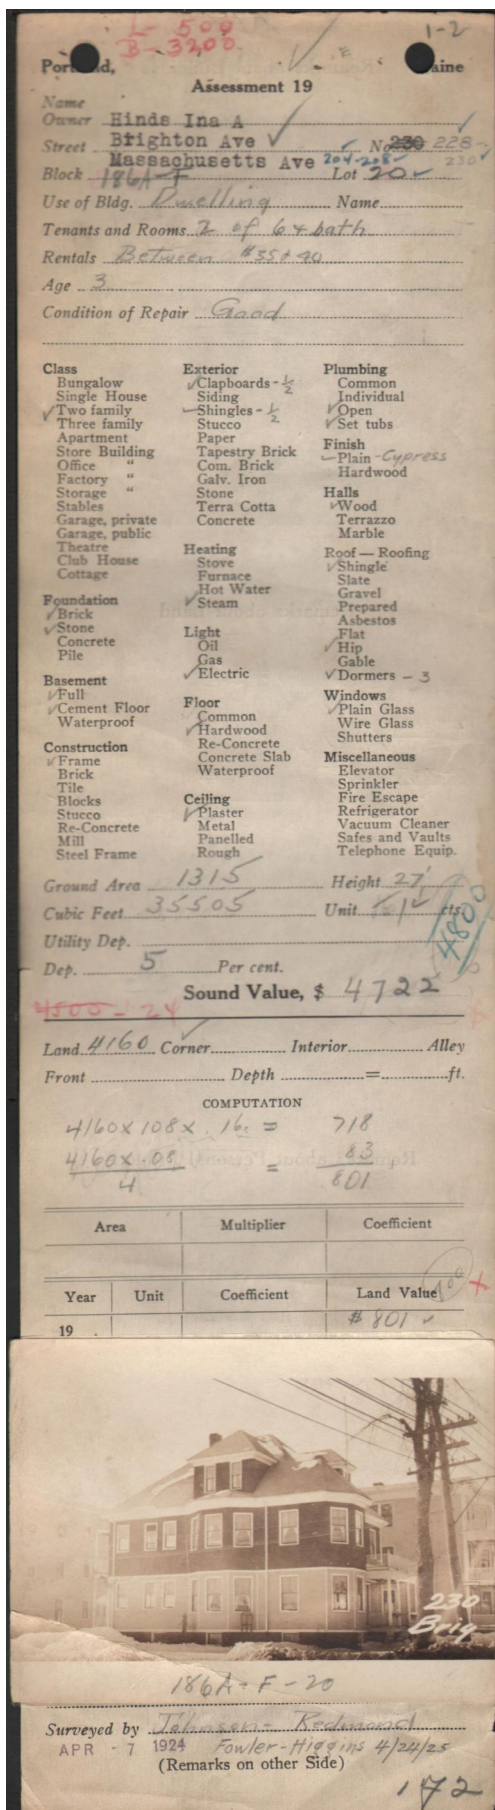 L - 500
B - 3200
1-2
Portland, Maine
Assessment 19
Name
Owner Hinds Ina A
Street Brighton Ave No 230 228-
Massachusetts Ave 204-208 230
Block 186A-F Lot 20
Use of Bldg. Dwelling Name
Tenants and Rooms 2 of 6 & bath
Rentals Between $35 & 40
Age 3
Condition of Repair Good
Class
Bungalow
Single House
✓Two family
Three family
Apartment
Store Building
Office "
Factory "
Storage "
Stables
Garage, private
Garage, public
Theatre
Club House
Cottage
Foundation
✓Brick
✓Stone
Concrete
Pile
Basement
✓Full
✓Cement Floor
Waterproof
Construction
✓Frame
Brick
Tile
Blocks
Stucco
Re-Concrete
Mill
Steel Frame
Exterior
✓Clapboards - ½
Siding
✓Shingles - ½
Stucco
Paper
Tapestry Brick
Com. Brick
Galv. Iron
Stone
Terra Cotta
Concrete
Heating
Stove
Furnace
Hot Water
✓Steam
Light
Oil
Gas
✓Electric
Floor
Common
✓Hardwood
Re-Concrete
Concrete Slab
Waterproof
Ceiling
✓Plaster
Metal
Panelled
Rough
Plumbing
Common
Individual
✓Open
✓Set tubs
Finish
✓Plain - Cypress
Hardwood
Halls
✓Wood
Terrazzo
Marble
Roof — Roofing
✓Shingle
Slate
Gravel
Prepared
Asbestos
Flat
✓Hip
Gable
✓Dormers - 3
Windows
✓Plain Glass
Wire Glass
Shutters
Miscellaneous
Elevator
Sprinkler
Fire Escape
Refrigerator
Vacuum Cleaner
Safes and Vaults
Telephone Equip.
Ground Area 1315 Height 27'
Cubic Feet 35505 Unit cts.
4800
Utility Dep.
Dep. 5 Per cent.
Sound Value, $ 4722
4500 - 24
Land 4160 Corner ✓ Interior Alley
Front Depth = ft.
COMPUTATION
4160 x 108 x .16 = 718
4160 x .08 = 83
4 801
Area Multiplier Coefficient
Year Unit Coefficient Land Value
19 $ 801 ✓
230
Brig
186A - F - 20
Surveyed by Johnson - Redmond
APR - 7 1924 Fowler-Higgins 4/24/25
(Remarks on other Side)
172